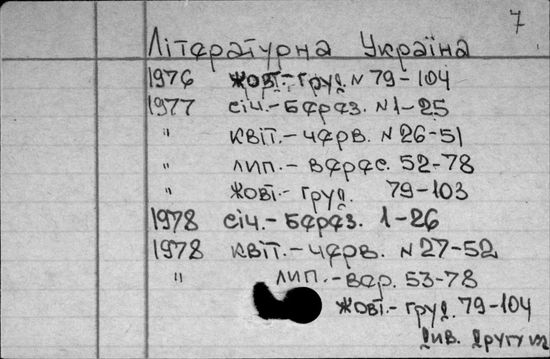 7
Літературна Україна
1976 жовт.-груд. N 79-104
1977 січ.-берез. N 1-25
" квіт.-черв. N 26-51
" лип.-верес. 52-78
" жовт.- груд. 79-103
1978 січ.-берез. 1-26
1978 квіт.-черв. N 27-52
" лип.-вер. 53-78
жовт.-груд. 79-104
див. другу